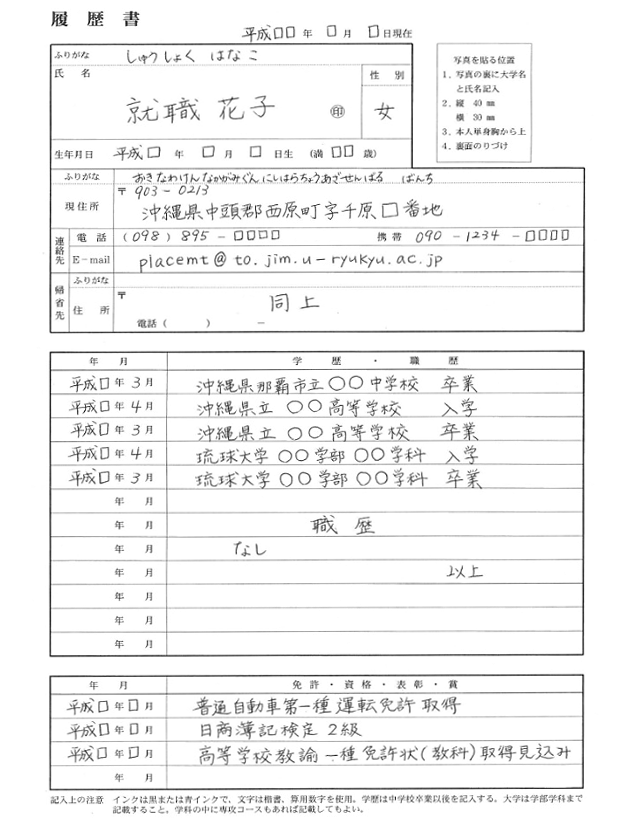 履歴書
平成□□年 □月 □日現在
ふりがな しゅうしょく はなこ
氏名 性別
就職 花子 ㊞ 女
生年月日 平成□年 □月 □日生 (満 □□歳)
写真を貼る位置
1. 写真の裏に大学名
と氏名記入
2. 縦 40㎜
横 30㎜
3. 本人単身胸から上
4. 裏面のりづけ
ふりがな おきなわけんなかがみぐんにしはらちょうあざせんばる ばんち
現住所 〒903-0213
沖縄県中頭郡西原町字千原□番地
連絡先 電話 (098) 895-□□□□ 携帯 090-1234-□□□□
E-mail placemt@to.jim.u-ryukyu.ac.jp
帰省先 ふりがな
住所 〒 同上
電話( ) -
年 月 学歴・職歴
平成□年3月 沖縄県那覇市立○○中学校 卒業
平成□年4月 沖縄県立 ○○高等学校 入学
平成□年3月 沖縄県立 ○○高等学校 卒業
平成□年4月 琉球大学 ○○学部 ○○学科 入学
平成□年3月 琉球大学 ○○学部 ○○学科 卒業
年 月
年 月 職歴
年 月 なし
年 月 以上
年 月
年 月
年 月
年 月 免許・資格・表彰・賞
平成□年□月 普通自動車第一種運転免許 取得
平成□年□月 日商簿記検定 2級
平成□年□月 高等学校教諭一種免許状(教科)取得見込み
年 月
記入上の注意 インクは黒または青インクで、文字は楷書、算用数字を使用。学歴は中学校卒業以後を記入する。大学は学部学科まで
記載すること。学科の中に専攻コースもあれば記載してもよい。